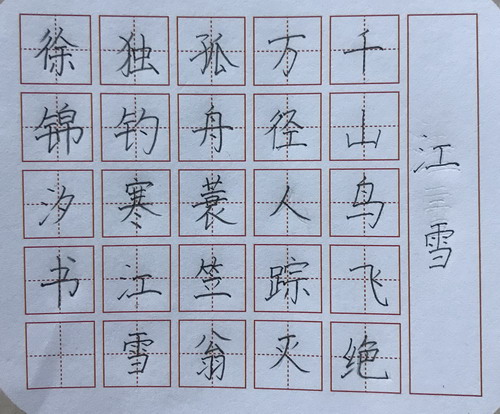 江雪
千山鸟飞绝
万径人踪灭
孤舟蓑笠翁
独钓寒江雪
徐锦汐书